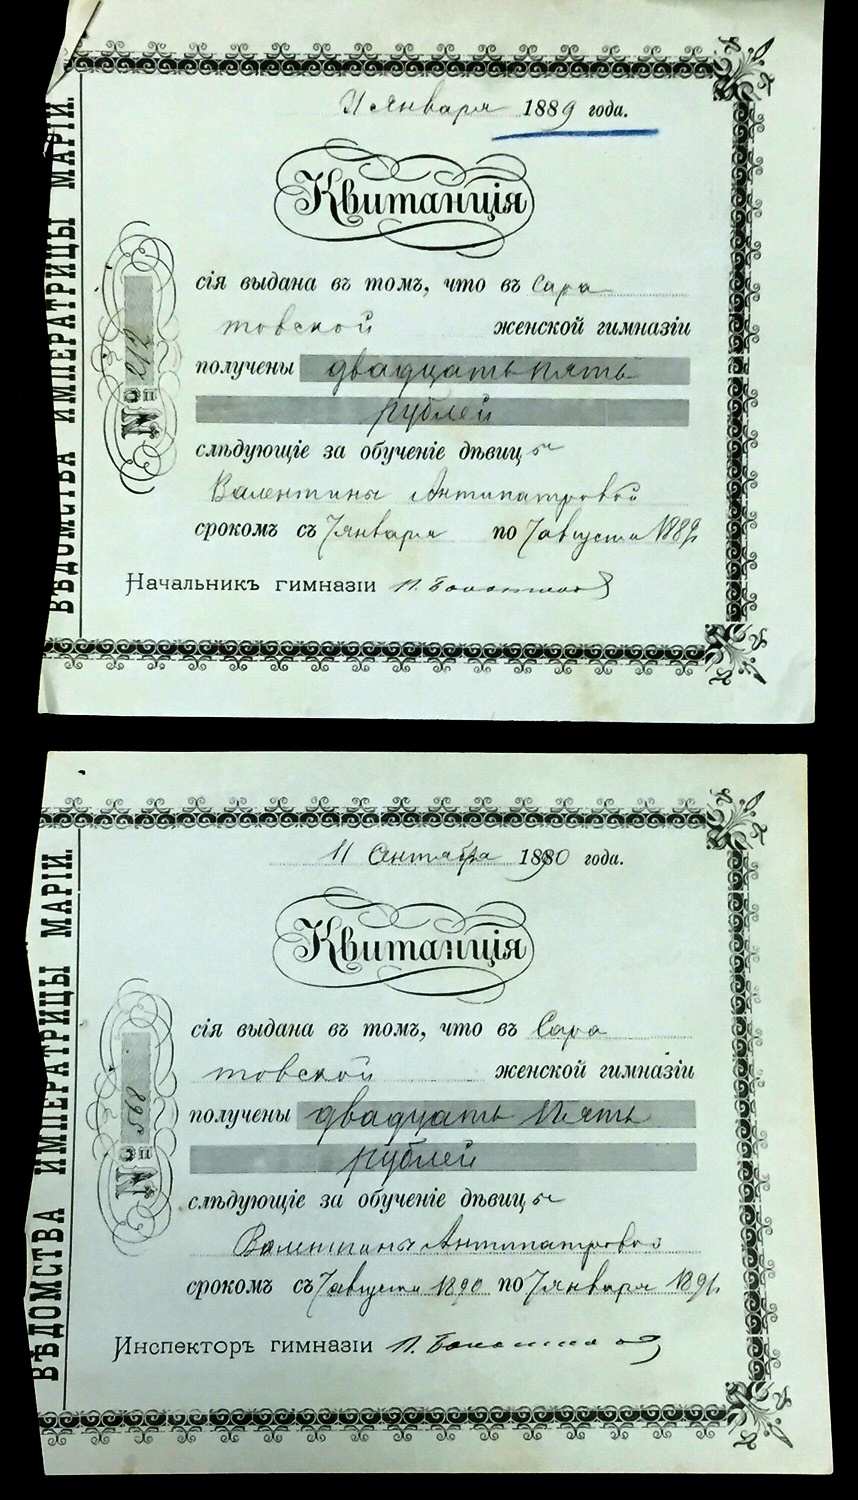 ВѢДОМСТВА ИМПЕРАТРИЦЫ МАРІИ.
Января 1889 года.
Квитанція
№
сія выдана въ томъ, что въ Сара
товской женской гимназіи
получены двадцать пять
рублей
слѣдующіе за обученіе дѣвицы
Валентины Антипатровой
срокомъ съ 7 января по 7 августа 1889
Начальникъ гимназіи
ВѢДОМСТВА ИМПЕРАТРИЦЫ МАРІИ.
11 Сентября 1890 года.
Квитанція
№ 568
сія выдана въ томъ, что въ Сара
товской женской гимназіи
получены двадцать пять
рублей
слѣдующіе за обученіе дѣвицы
Валентины Антипатровой
срокомъ съ 7 августа 1890 по 7 января 1891
Инспекторъ гимназіи